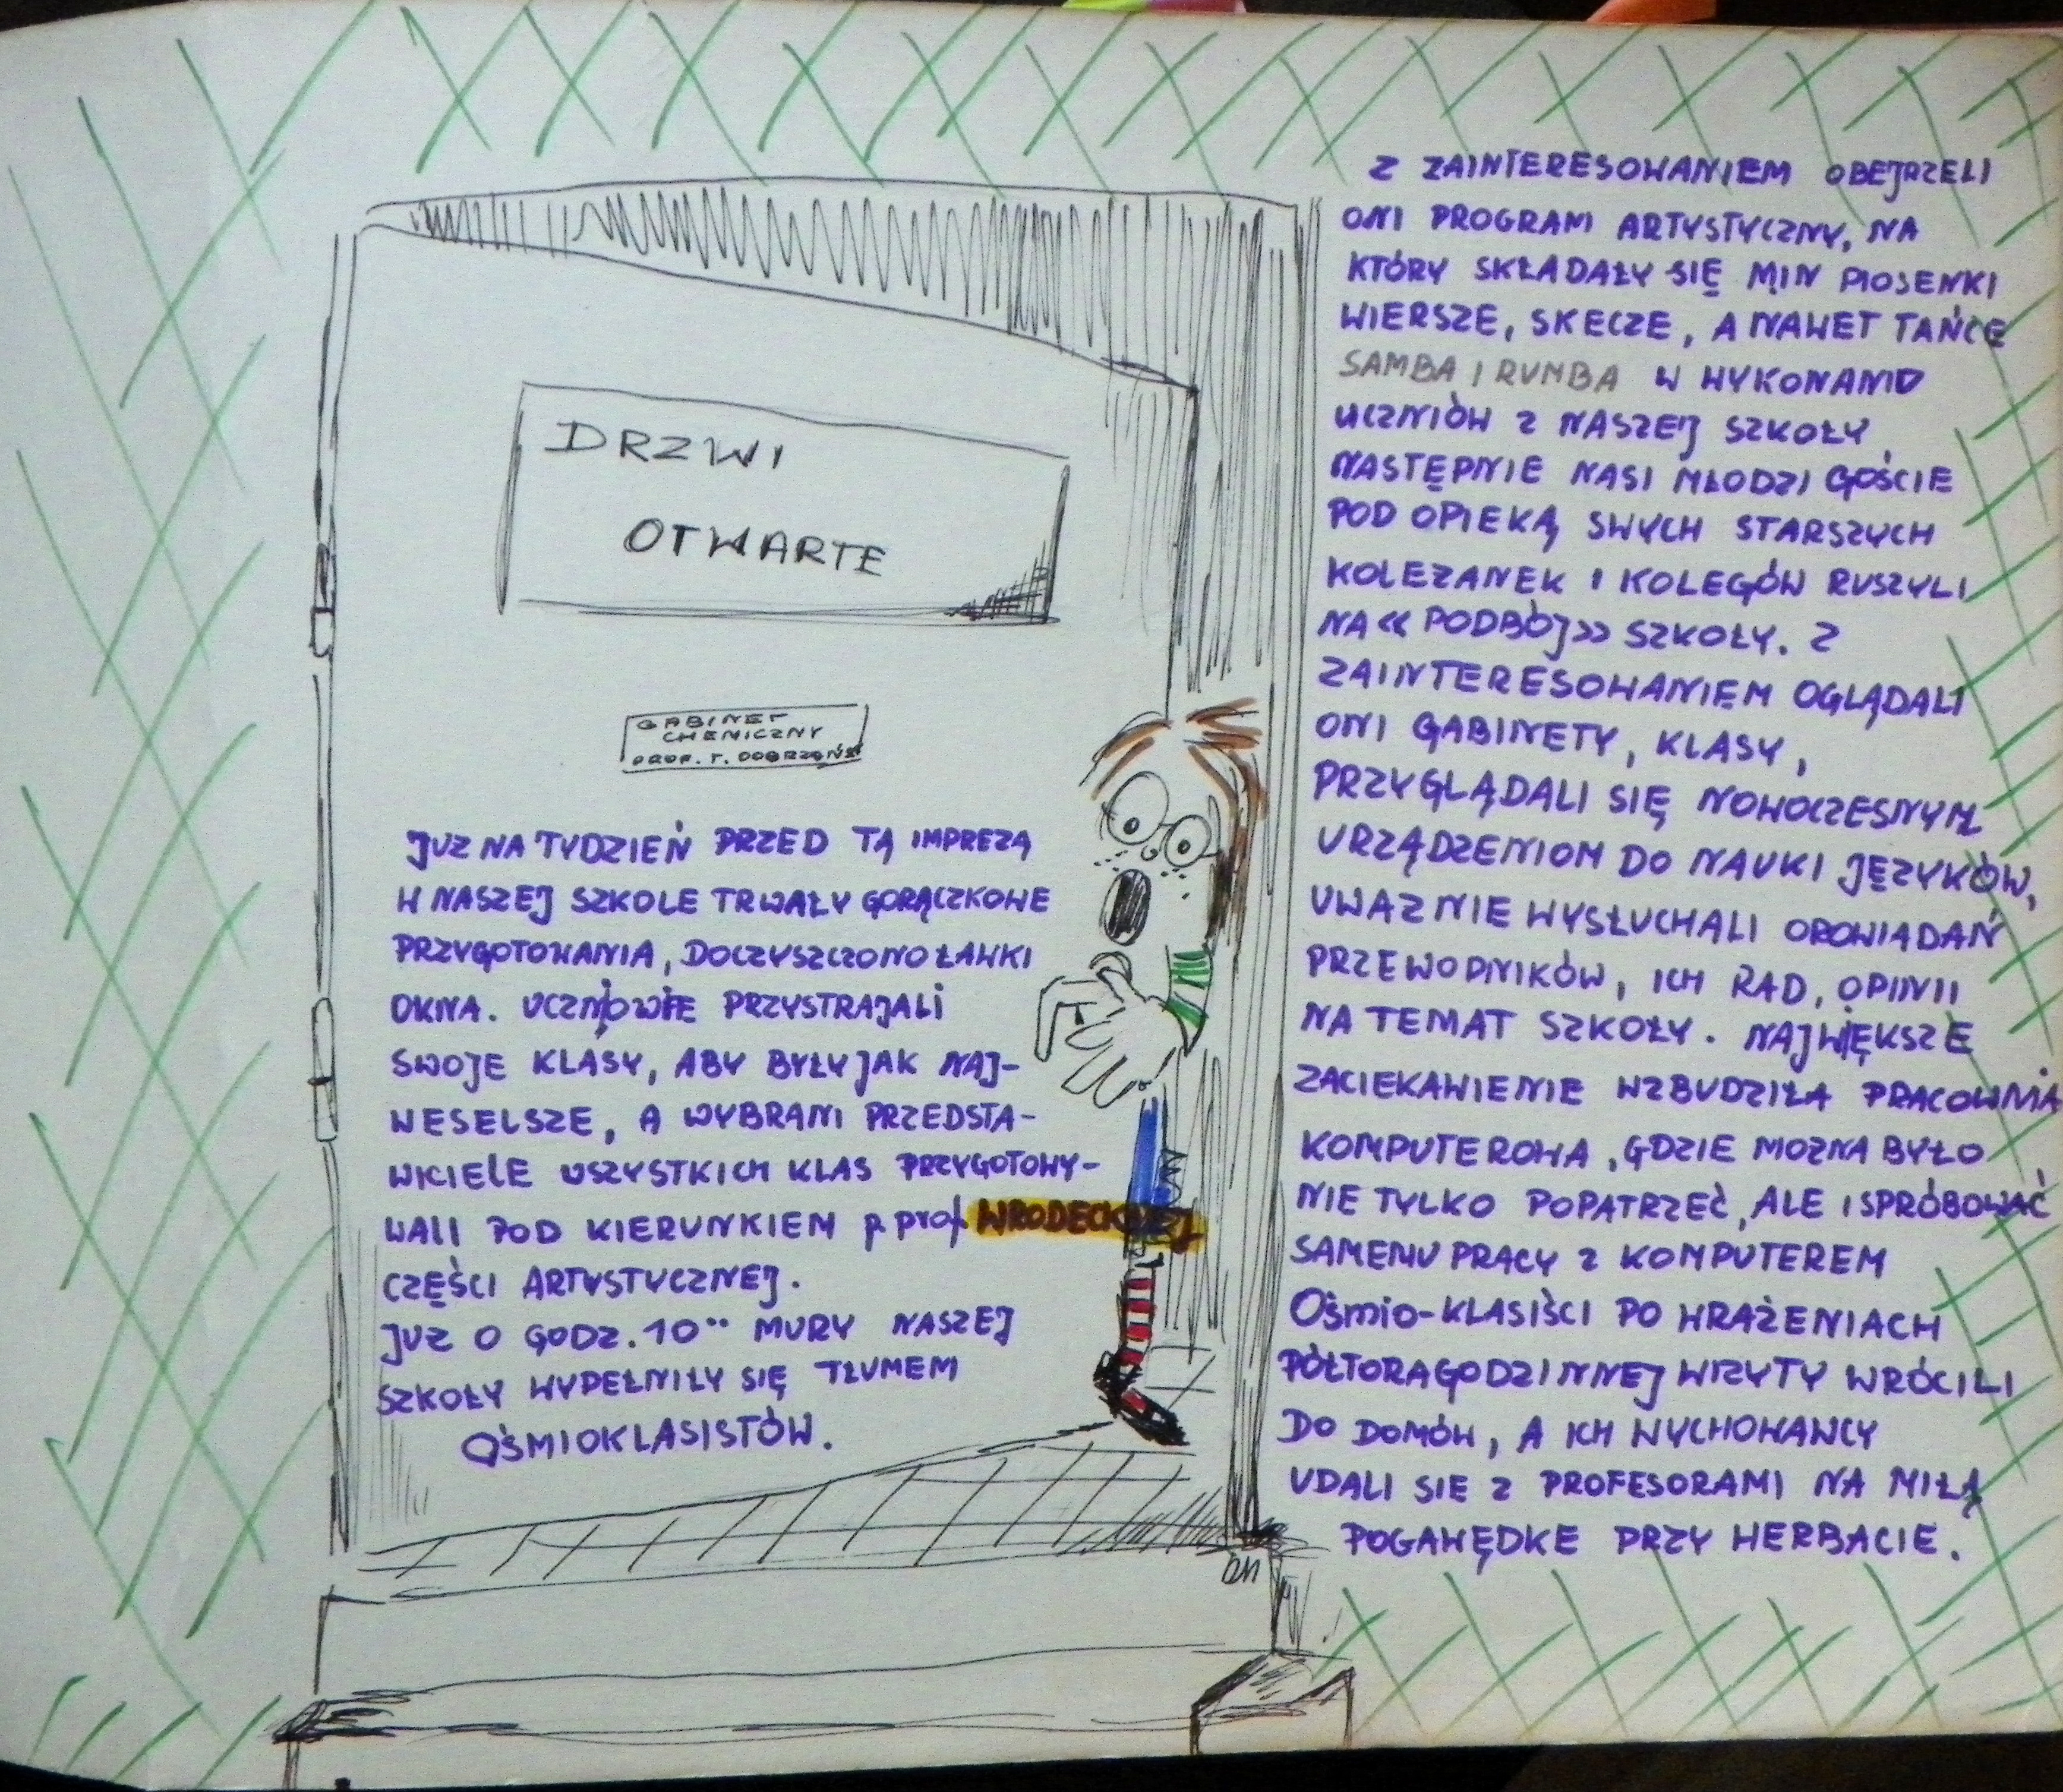 DRZWI
OTWARTE
GABINET
CHEMICZNY
PROF. T. DOBRZAŃS
JUZ NA TYDZIEŃ PRZED TĄ IMPREZĄ
W NASZEJ SZKOLE TRWAŁY GORĄCZKOWE
PRZYGOTOWANIA, DOCZYSZCZONO ŁAWKI
OKNA. UCZNIOWIE PRZYSTRAJALI
SWOJE KLASY, ABY BYŁY JAK NAJ-
WESELSZE, A WYBRANI PRZEDSTA-
WICIELE WSZYSTKICH KLAS PRZYGOTOWY-
WALI POD KIERUNKIEM p. prof. WRODECKIEJ
CZĘŚCI ARTYSTYCZNEJ.
JUZ O GODZ. 10⁰⁰ MURY NASZEJ
SZKOŁY WYPEŁNIŁY SIĘ TŁUMEM
OŚMIOKLASISTÓW.
Z ZAINTERESOWANIEM OBEJRZELI
ONI PROGRAM ARTYSTYCZNY, NA
KTÓRY SKŁADAŁY SIĘ MIN PIOSENKI
WIERSZE, SKECZE, A NAWET TAŃCE
SAMBA I RUMBA W WYKONANIU
UCZNIÓW Z NASZEJ SZKOŁY
NASTĘPNIE NASI MŁODZI GOŚCIE
POD OPIEKĄ SWYCH STARSZYCH
KOLEZANEK I KOLEGÓW RUSZYLI
NA « PODBÓJ » SZKOŁY. Z
ZAINTERESOWANIEM OGLĄDALI
ONI GABINETY, KLASY,
PRZYGLĄDALI SIĘ NOWOCZESNYM
URZĄDZENIOM DO NAUKI JĘZYKÓW,
UWAZNIE WYSŁUCHALI OPOWIADAŃ
PRZEWODNIKÓW, ICH RAD, OPINII
NA TEMAT SZKOŁY. NAJWIĘKSZE
ZACIEKAWIENIE WZBUDZIŁA PRACOWNIA
KOMPUTEROWA, GDZIE MOZNA BYŁO
NIE TYLKO POPATRZEĆ, ALE I SPRÓBOWAĆ
SAMEMU PRACY Z KOMPUTEREM
OŚMIO-KLASIŚCI PO WRAŻENIACH
PÓŁTORAGODZINNEJ WIZYTY WRÓCILI
DO DOMÓW, A ICH WYCHOWANCY
UDALI SIE Z PROFESORAMI NA MIŁĄ
POGAWĘDKE PRZY HERBACIE.